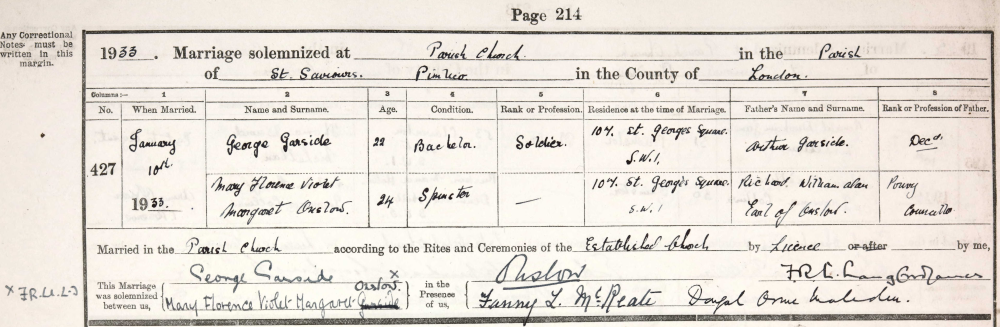 Page 214
Any Correctional
Notes must be
written in this
margin.
1933. Marriage solemnized at Parish Church in the Parish
of St. Saviours. Pimlico in the County of London.
Columns :— 1 2 3 4 5 6 7 8
No. When Married. Name and Surname. Age. Condition. Rank or Profession. Residence at the time of Marriage. Father's Name and Surname. Rank or Profession of Father.
427 January 10th. 1933 George Garside 22 Bachelor Soldier. 107. St. Georges Square. S.W.1. Arthur Garside. Decd.
Mary Florence Violet Margaret Onslow. 24 Spinster — 107. St. Georges Square. S.W.1 Richard William Alan Earl of Onslow.
Married in the Parish Church according to the Rites and Ceremonies of the Established Church by Licence or after by me,
George Garside Onslow
This Marriage was solemnized between us, Mary Florence Violet Margaret Garside x Onslow. in the Presence of us, Fanny L.